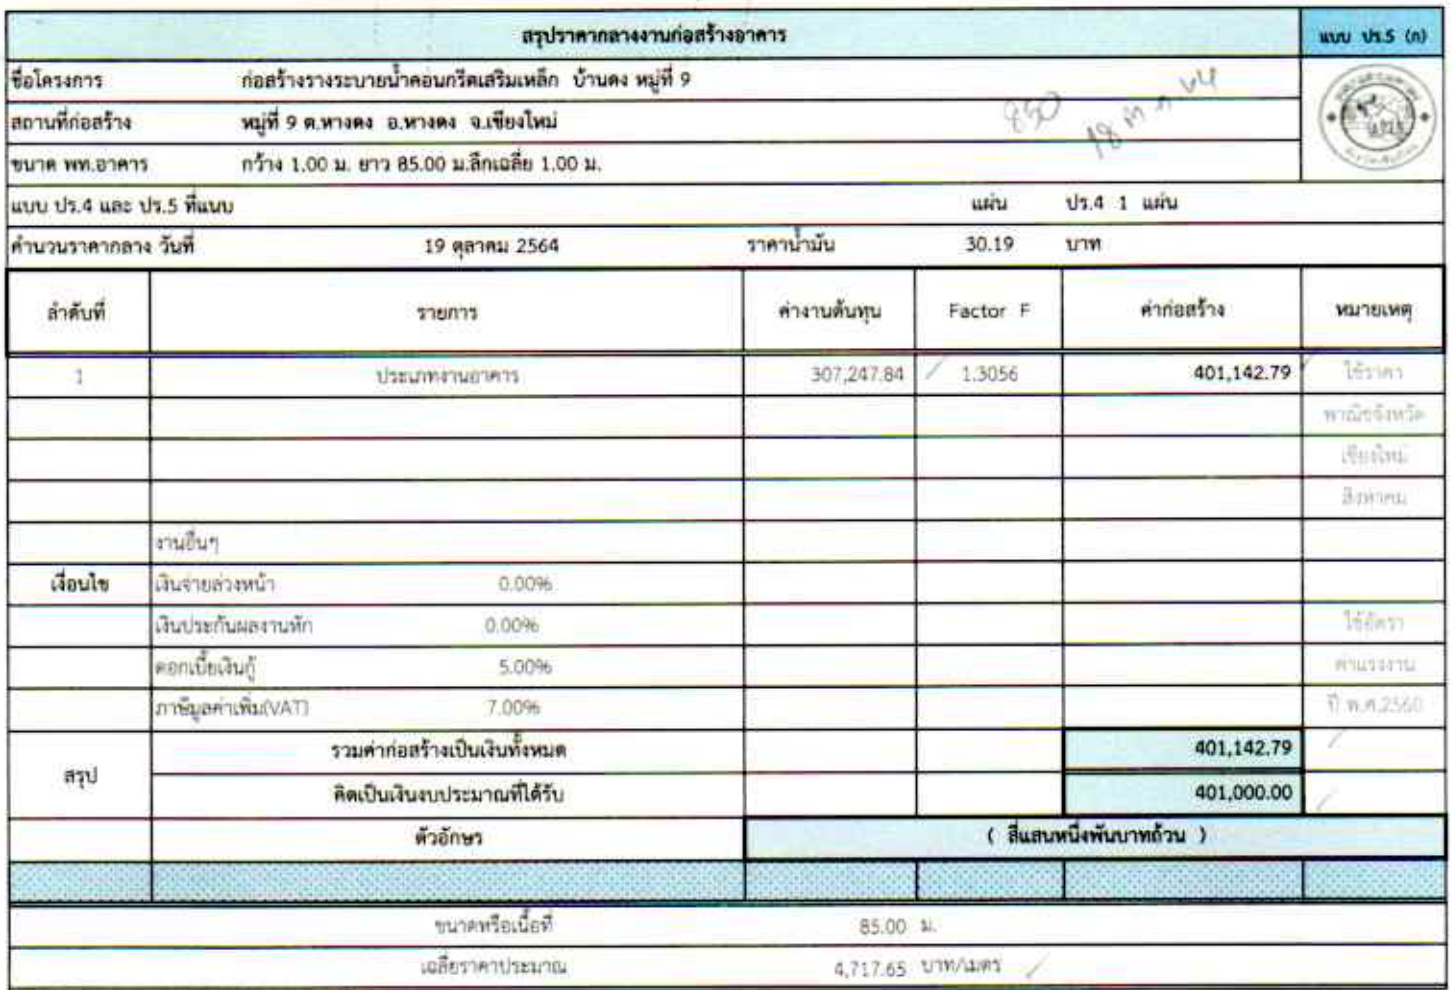 สรุปราคากลางงานก่อสร้างอาคาร แบบ ปร.5 (ก)
ชื่อโครงการ ก่อสร้างรางระบายน้ำคอนกรีตเสริมเหล็ก บ้านดง หมู่ที่ 9
850 18 ต.ค. 64
สถานที่ก่อสร้าง หมู่ที่ 9 ต.หางดง อ.หางดง จ.เชียงใหม่
ขนาด พท.อาคาร กว้าง 1.00 ม. ยาว 85.00 ม.ลึกเฉลี่ย 1.00 ม.
แบบ ปร.4 และ ปร.5 ที่แนบ แผ่น ปร.4 1 แผ่น
คำนวนราคากลาง วันที่ 19 ตุลาคม 2564 ราคาน้ำมัน 30.19 บาท
ลำดับที่ รายการ ค่างานต้นทุน Factor F ค่าก่อสร้าง หมายเหตุ
1 ประเภทงานอาคาร 307,247.84 1.3056 401,142.79 ใช้ราคา
พาณิชจังหวัด
เชียงใหม่
สิงหาคม
งานอื่นๆ
เงื่อนไข เงินจ่ายล่วงหน้า 0.00%
เงินประกันผลงานหัก 0.00% ใช้อัตรา
ดอกเบี้ยเงินกู้ 5.00% ค่าแรงงาน
ภาษีมูลค่าเพิ่ม(VAT) 7.00% ปี พ.ศ.2560
สรุป รวมค่าก่อสร้างเป็นเงินทั้งหมด 401,142.79
คิดเป็นเงินงบประมาณที่ได้รับ 401,000.00
ตัวอักษร ( สี่แสนหนึ่งพันบาทถ้วน )
ขนาดหรือเนื้อที่ 85.00 ม.
เฉลี่ยราคาประมาณ 4,717.65 บาท/เมตร